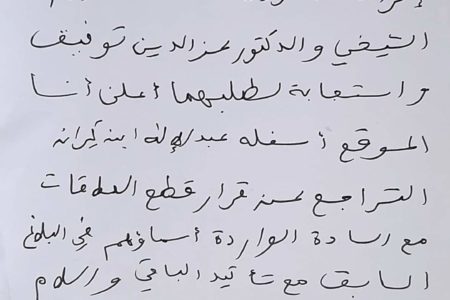 الشيخي والدكتور عز الدين توفيق
واستجابة لطلبهما أعلن أنا
الموقع أسفله عبد الإلاه ابن كيران
التراجع عن قرار قطع العلاقات
مع السادة الواردة أسماؤهم في البلاغ
السابق مع تأييد الباقي والسلام